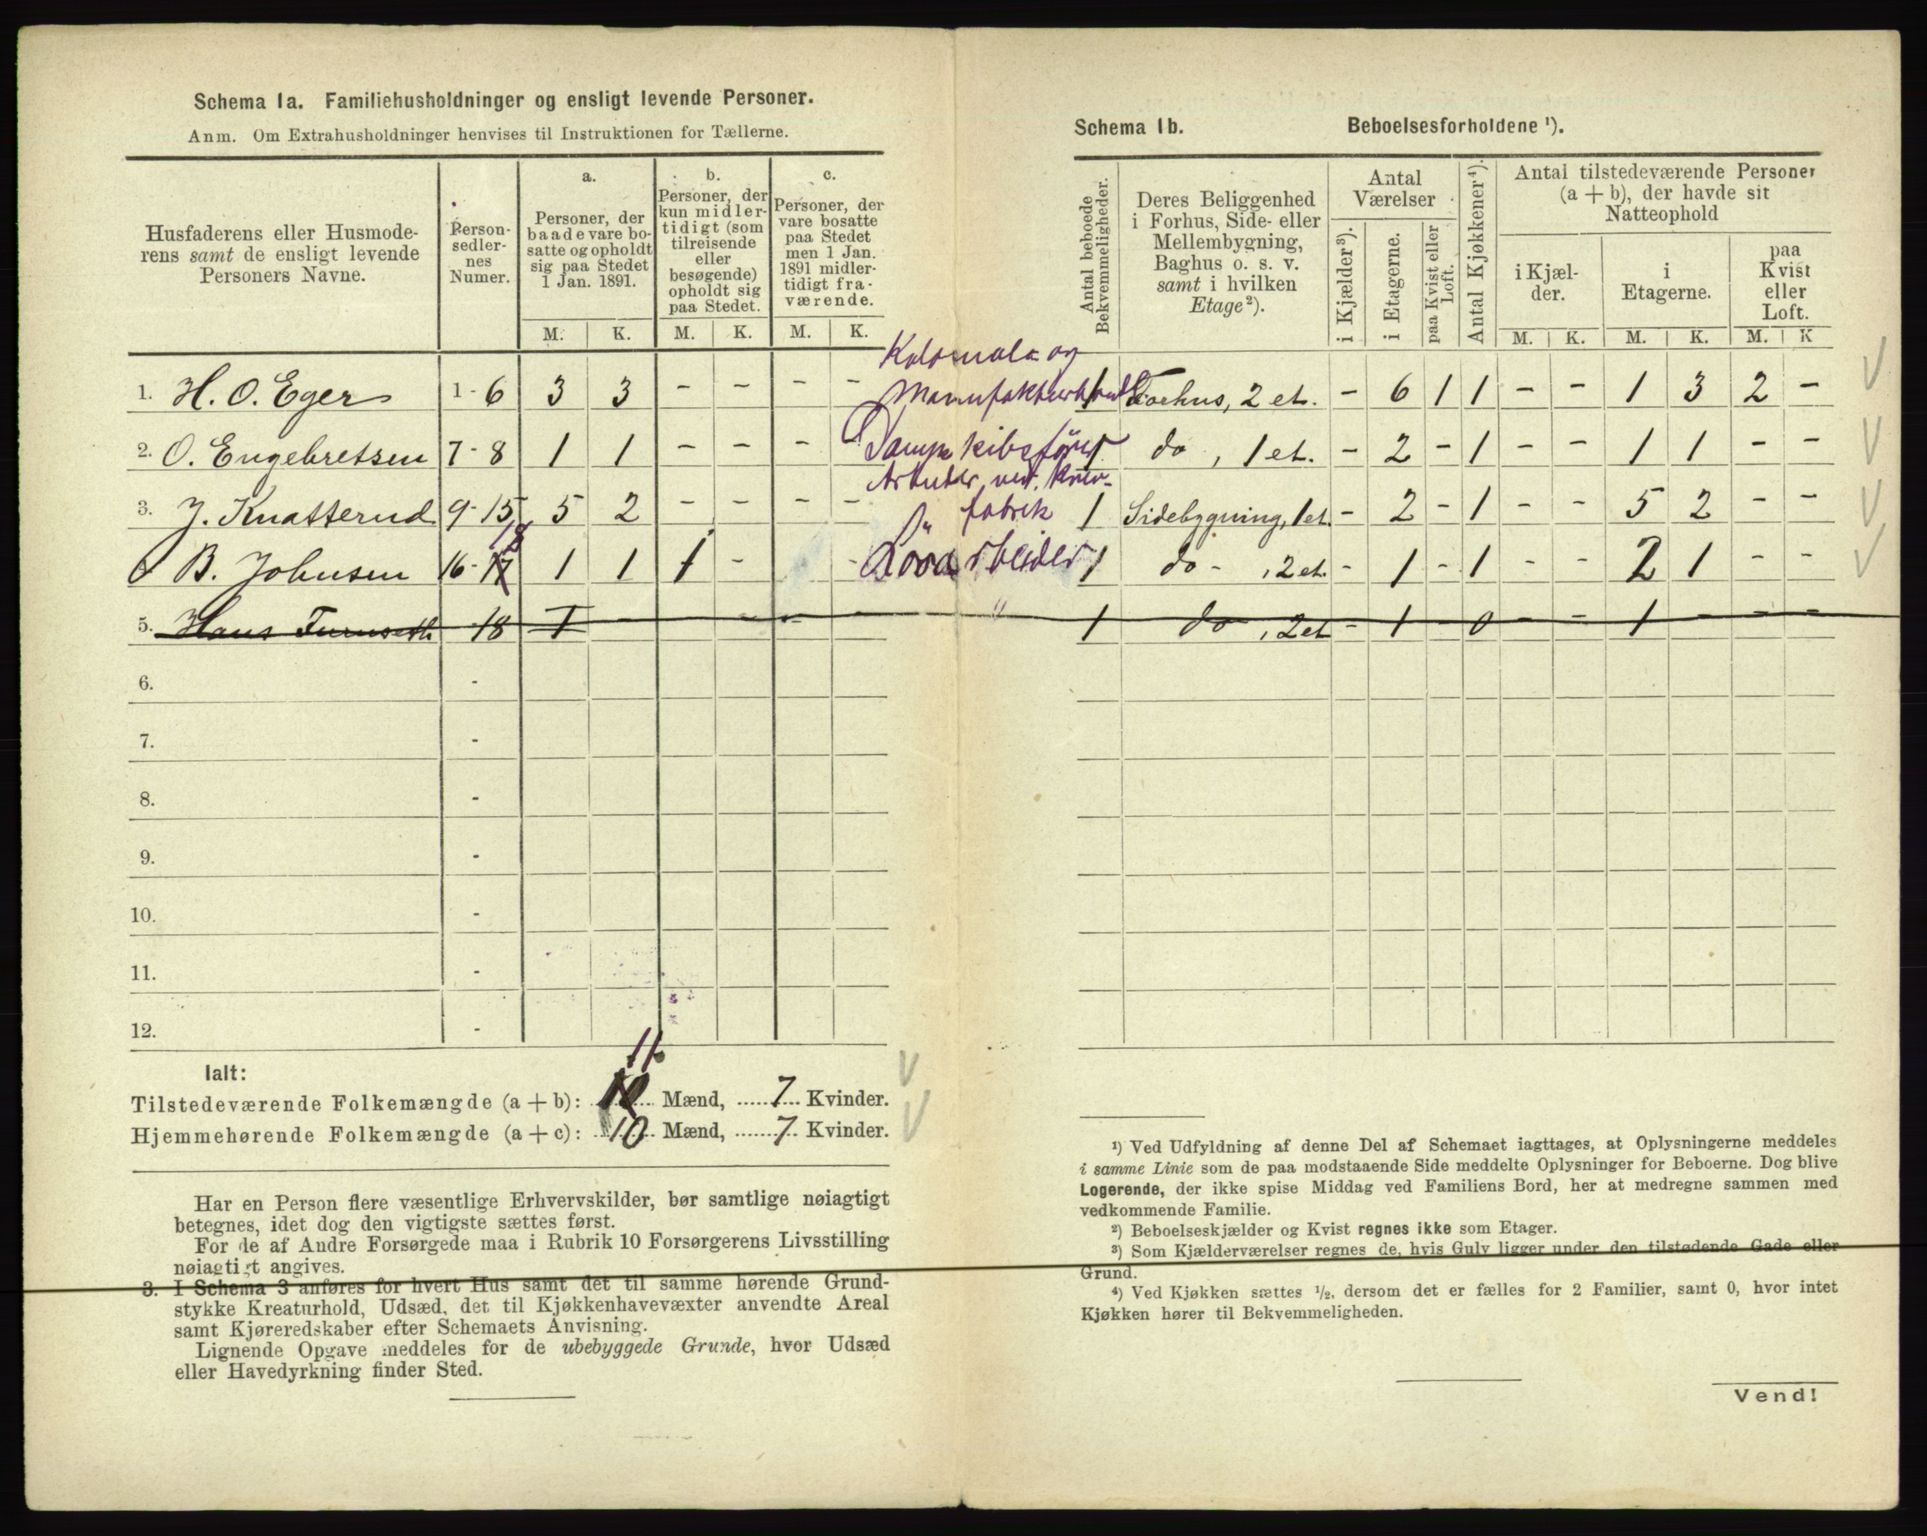 Schema 1 a. Familiehusholdninger og ensligt levende Personer.
Anm. Om Extrahusholdninger henvises til Instruktionen for Tællerne.
Husfaderens eller Husmode-
rens samt de ensligt levende
Personers Navne.
Person-
sedler-
nes
Numer.
a.
Personer, der
baade vare bo-
satte og opholdt
sig paa Stedet
1 Jan. 1891.
b.
Personer, der
kun midler-
tidigt (som
tilreisende
eller
besøgende)
opholdt sig
paa Stedet.
c.
Personer, der
vare bosatte
paa Stedet
men 1 Jan.
1891 midler-
tidigt fra-
værende.
M. K. M. K. M. K.
Kolonial- og
1. H. O. Eger 1-6 3 3 - - - -
2. O. Engebretsen 7-8 1 1 - - - -
3. J. Knatterud 9-15 5 2 - - - - fabrik
B. Johnsen 16-17 18 1 1 1 - -
5. Hans Furuseth -18 1 - - - -
6. -
7. -
8. -
9. -
10. -
11. -
12. -
Ialt:
11
Tilstedeværende Folkemængde (a + b): Mænd, 7 Kvinder.
Hjemmehørende Folkemængde (a + c): 10 Mænd, 7 Kvinder.
Har en Person flere væsentlige Erhvervskilder, bør samtlige nøiagtigt
betegnes, idet dog den vigtigste sættes først.
For de af Andre Forsørgede maa i Rubrik 10 Forsørgerens Livsstilling
nøiagtigt angives.
3. I Schema 3 anføres for hvert Hus samt det til samme hørende Grund-
stykke Kreaturhold, Udsæd, det til Kjøkkenhavevæxter anvendte Areal
samt Kjøreredskaber efter Schemaets Anvisning.
Lignende Opgave meddeles for de ubebyggede Grunde, hvor Udsæd
eller Havedyrkning finder Sted.
Schema 1 b. Beboelsesforholdene ¹).
Antal beboede
Bekvemmeligheder.
Deres Beliggenhed
i Forhus, Side- eller
Mellembygning,
Baghus o. s. v.
samt i hvilken
Etage²).
Antal
Værelser
i Kjælder³).
i Etagerne.
paa Kvist eller
Loft.
Antal Kjøkkener⁴).
Antal tilstedeværende Personer
(a + b), der havde sit
Natteophold
i Kjæl-
der.
i
Etagerne.
paa
Kvist
eller
Loft.
M. K. M. K. M. K
1 Forhus, 2 et. - 6 1 1 - - 1 3 2 -
1 do , 1 et. - 2 - 1 - - 1 1 - -
1 Sidebygning, 1 et. - 2 - 1 - - 5 2 - -
1 do - , 2 et. - 1 - 1 - - 2 1 - -
1 do , 2 et - 1 - 0 - - 1 - - -
¹) Ved Udfyldning af denne Del af Schemaet iagttages, at Oplysningerne meddeles
i samme Linie som de paa modstaaende Side meddelte Oplysninger for Beboerne. Dog blive
Logerende, der ikke spise Middag ved Familiens Bord, her at medregne sammen med
vedkommende Familie.
²) Beboelseskjælder og Kvist regnes ikke som Etager.
³) Som Kjælderværelser regnes de, hvis Gulv ligger under den tilstødende Gade eller
Grund.
⁴) Ved Kjøkken sættes ½, dersom det er fælles for 2 Familier, samt 0, hvor intet
Kjøkken hører til Bekvemmeligheden.
Vend!